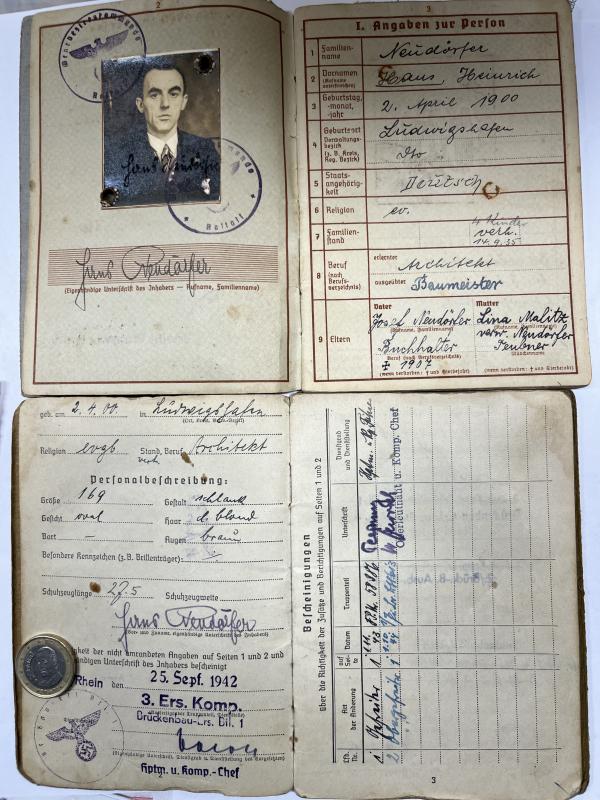 2
Wehrbezirkskommando
Rastatt
Hans Neudörfer
Rastatt
Hans Neudörfer
(Eigenhändige Unterschrift des Inhabers — Rufname, Familienname)
3
I. Angaben zur Person
1 Familien-
name
Neudörfer
2 Vornamen
(Rufname
unterstreichen)
Hans, Heinrich
3 Geburtstag,
-monat,
-jahr
2. April 1900
4 Geburtsort
Verwaltungs-
bezirk
(z. B. Kreis,
Reg. Bezirk)
Ludwigshafen
Dto
5 Staats-
angehörig-
keit
Deutsch
6 Religion
ev.
7 Familien-
stand
4 Kinder
verh.
14.9.35
8 Beruf
(nach
Berufs-
verzeichnis)
erlernter
Architekt
ausgeübter
Baumeister
9 Eltern
Vater
Josef Neudörfer
(Rufname, Familienname)
Buchhalter
Beruf (nach Berufsverzeichnis)
‡ 1907
(wenn verstorben: † und Sterbejahr)
Mutter
Lina Malitz
(Rufname, Familienname)
verw. Neudörfer
Teubner
Mädchenname
(wenn verstorben: † und Sterbejahr)
geb. am 2.4.00. in Ludwigshafen
(Ort, Kreis, Verw.-Bezirk)
Religion evgl Stand, Beruf Architekt
verh
Personalbeschreibung:
Größe 169 Gestalt schlank
Gesicht oval Haar d. blond
Bart — Augen braun
Besondere Kennzeichen (z. B. Brillenträger):
Schuhzeuglänge 27,5 Schuhzeugweite
Hans Neudörfer
(Vor- und Zuname, eigenhändige Unterschrift des Inhabers)
igkeit der nicht umrandeten Angaben auf Seiten 1 und 2 und
händigen Unterschrift des Inhabers bescheinigt
Rhein den 25. Sept. 1942
3. Ers. Komp.
Brückenbau-Ers. Btl. 1
(Eigenhändige Unterschrift, Dienstgrad u. Dienststellung des Vorgesetzten)
Hptm. u. Komp.-Chef
Bescheinigungen
über die Richtigkeit der Zusätze und Berichtigungen auf Seiten 1 und 2
Lfd.
Nr.
Art
der Änderung
auf
Sei-
te
Datum
Truppenteil
Unterschrift
Dienstgrad
und Dienststellung
1 Gefreiter 1 1.11.43
2 Obergefreite 1 1.10.44
Oberleutnant u. Komp. Chef
3